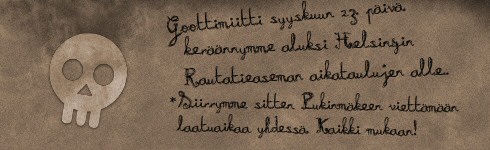 Goottimiitti syyskuun 23. päivä.
keräännymme aluksi Helsingin
Rautatieaseman aikataulujen alle..
*Siirrymme sitten Pukinmäkeen viettämään
laatuaikaa yhdessä. Kaikki mukaan!